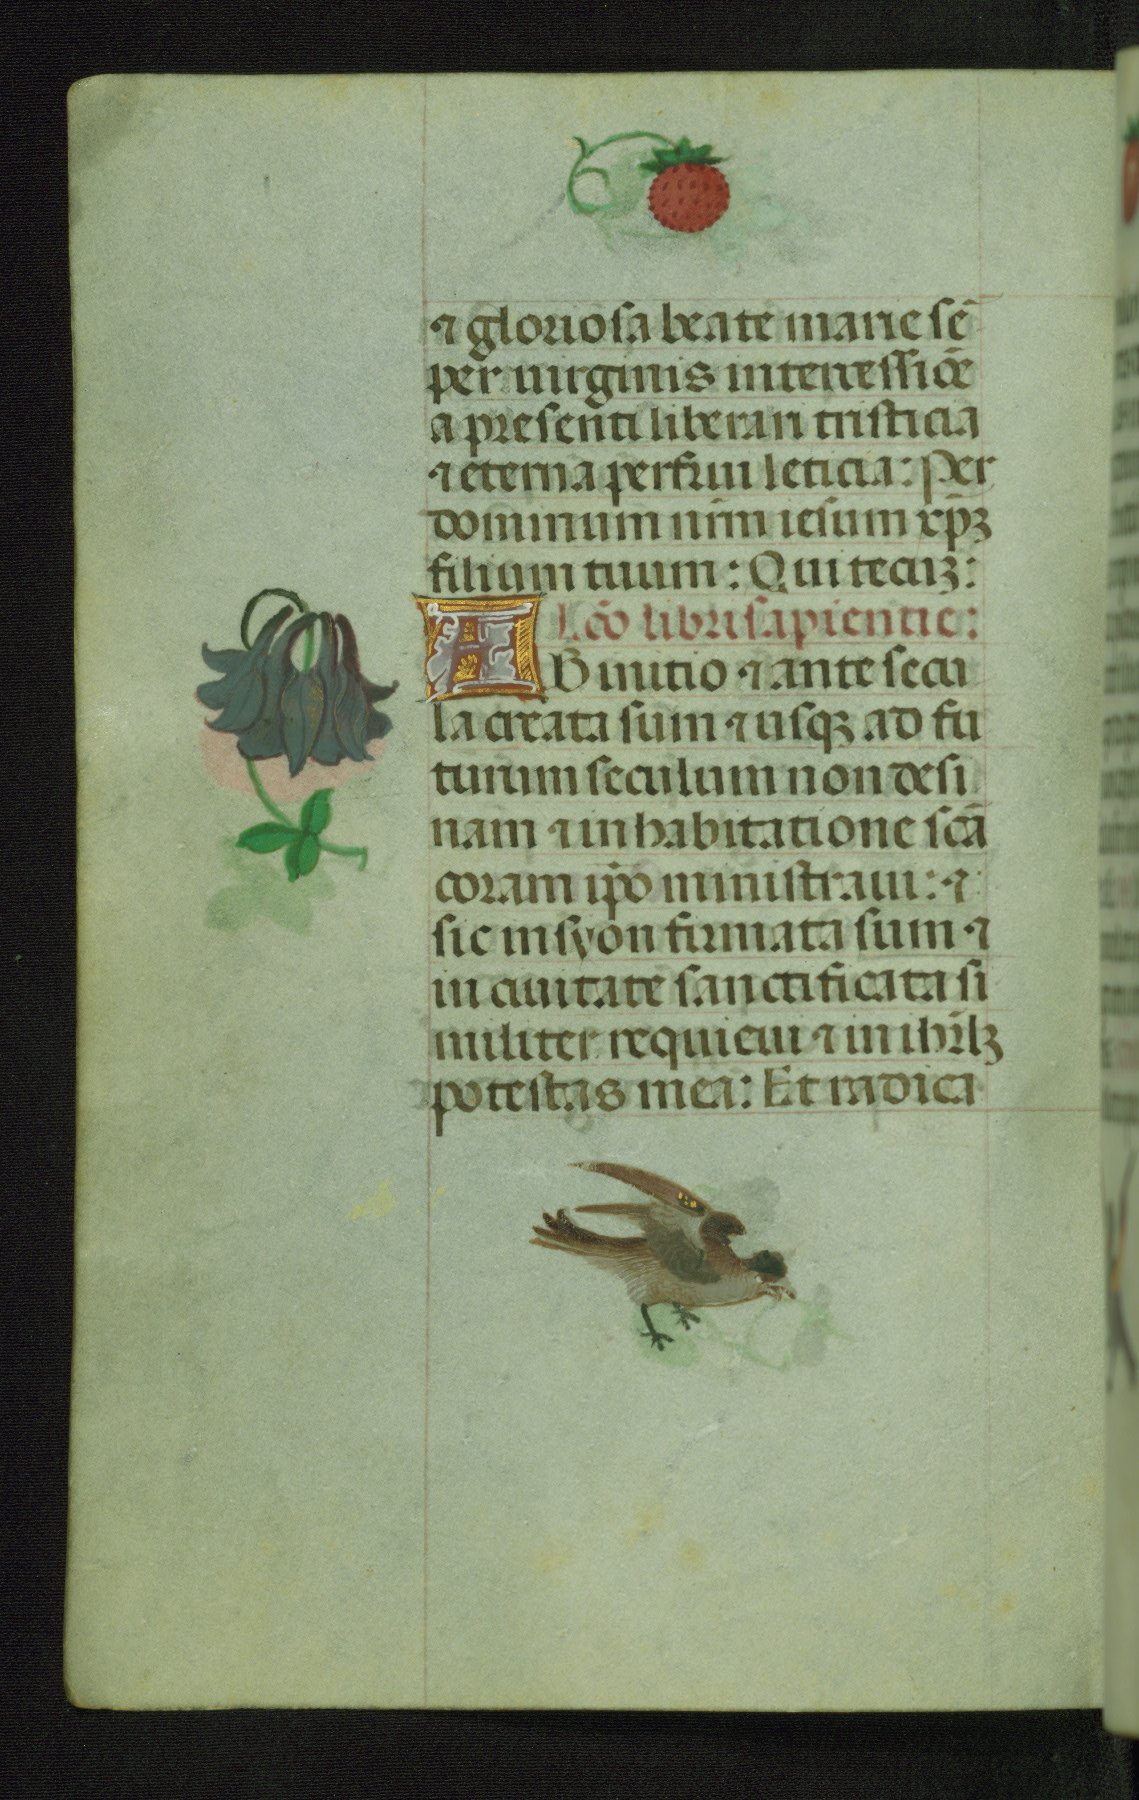 ⁊ gloriosa beate marie sē
per uirginis intercessiōe
a presenti liberari tristicia
⁊ eterna perfrui leticia: Per
dominum nr̄m iesum xp̄ꝫ
filium tuum: Qui tecuꝫ:
Lcō libri sapientie:
AB initio ⁊ ante secu
la creata sum ⁊ usqꝫ ad fu
turum seculum non desi
nam ⁊ in habitatione scā
coram ip̄o ministraui: ⁊
sic in syon firmata sum ⁊
in ciuitate sanctificata si
militer requieui ⁊ in ihrl̄ꝫ
potestas mea: Et radica